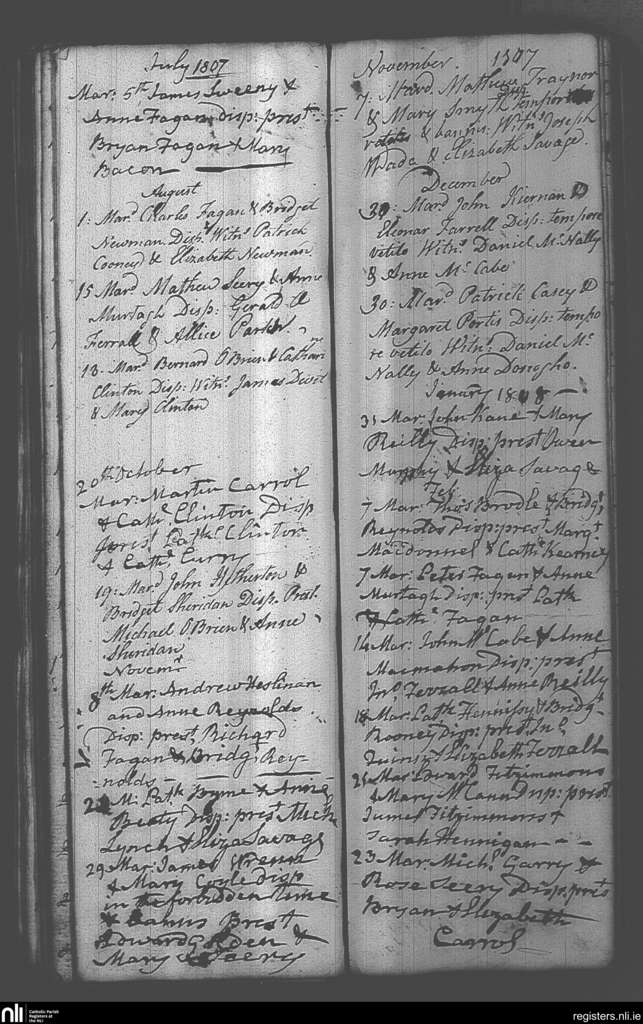 July 1807
Mar: 5th James Sweeny &
Anne Fagan Disp: prest
Bryan Fagan & Mary
Bacon
August
1: Mard Charles Fagan & Bridget
Newman Disp: Witns Patrick
Cooney & Elizabeth Newman
15 Mard Mathew Seery & Anne
Murtagh Disp: Gerald
Ferrall & Allice
13. Mard Bernard O'Brien & Catharine
Clinton Disp: Witns James
& Mary Clinton
20th October
Mar: Martin Carrol
& Cathe Clinton Disp
prest Patk Clinton
& Cathe Curry
19: Mard John &
Bridget Sheridan Disp. Prest.
Michael O'Brien & Anne
Sheridan
Novemr
8th Mar: Andrew Heslinan
and Anne Reynolds
Disp: prest, Richard
Fagan & Bridgt Rey-
-nolds
M: Patk Byrne & Anne
Beaty Disp: prest Mich
Lynch & Eliza Savage
29 Mar: James
& Mary Coyle Disp
in the forbidden time
& banns Prest
Edward &
Mary
November. 1807
7: Mard Mathew Traynor
& Mary Smyth Disp: tempore
vetito & banns. Witns Joseph
Wada & Elizabeth Savage.
December
30: Mard John Kiernan &
Eleonar Farrell Disp: tempore
vetito Witns Daniel McNally
& Anne McCabe
30: Mard Patrick Casey &
Margaret Portis Disp: tempo
re vetito Witns. Daniel Mc
Nally & Anne Donogho.
January 1808
31 Mar: John Kane & Mary
Reilly Disp: prest Owen
Murphy & Eliza Savage
Feb
7 Mar: Thos Brodle & Bridgt
Reynolds Disp: prest Margt
MacDonnel & Cathe Kearney
7 Mar: Peter Fagan & Anne
Murtagh Disp: prest Patk
& Cathe Fagan
14 Mar: John McCabe & Anne
Macmahon Disp: prest
Jno Ferrall & Anne Reilly
18 Mar: Patk Hennissy & Bridgt
Rooney Disp: prest Jno
Quinn & Elizabeth Ferrall
25 Mar: Edward Fitzimmons
& Mary McCann Disp: prest
James Fitzimmons &
Sarah Hennigan
23 Mar: Michl Garry &
Rose Seery Disp: prest
Bryan & Elizabeth
Carrol
nli
Catholic Parish
Registers at
the NLI
registers.nli.ie